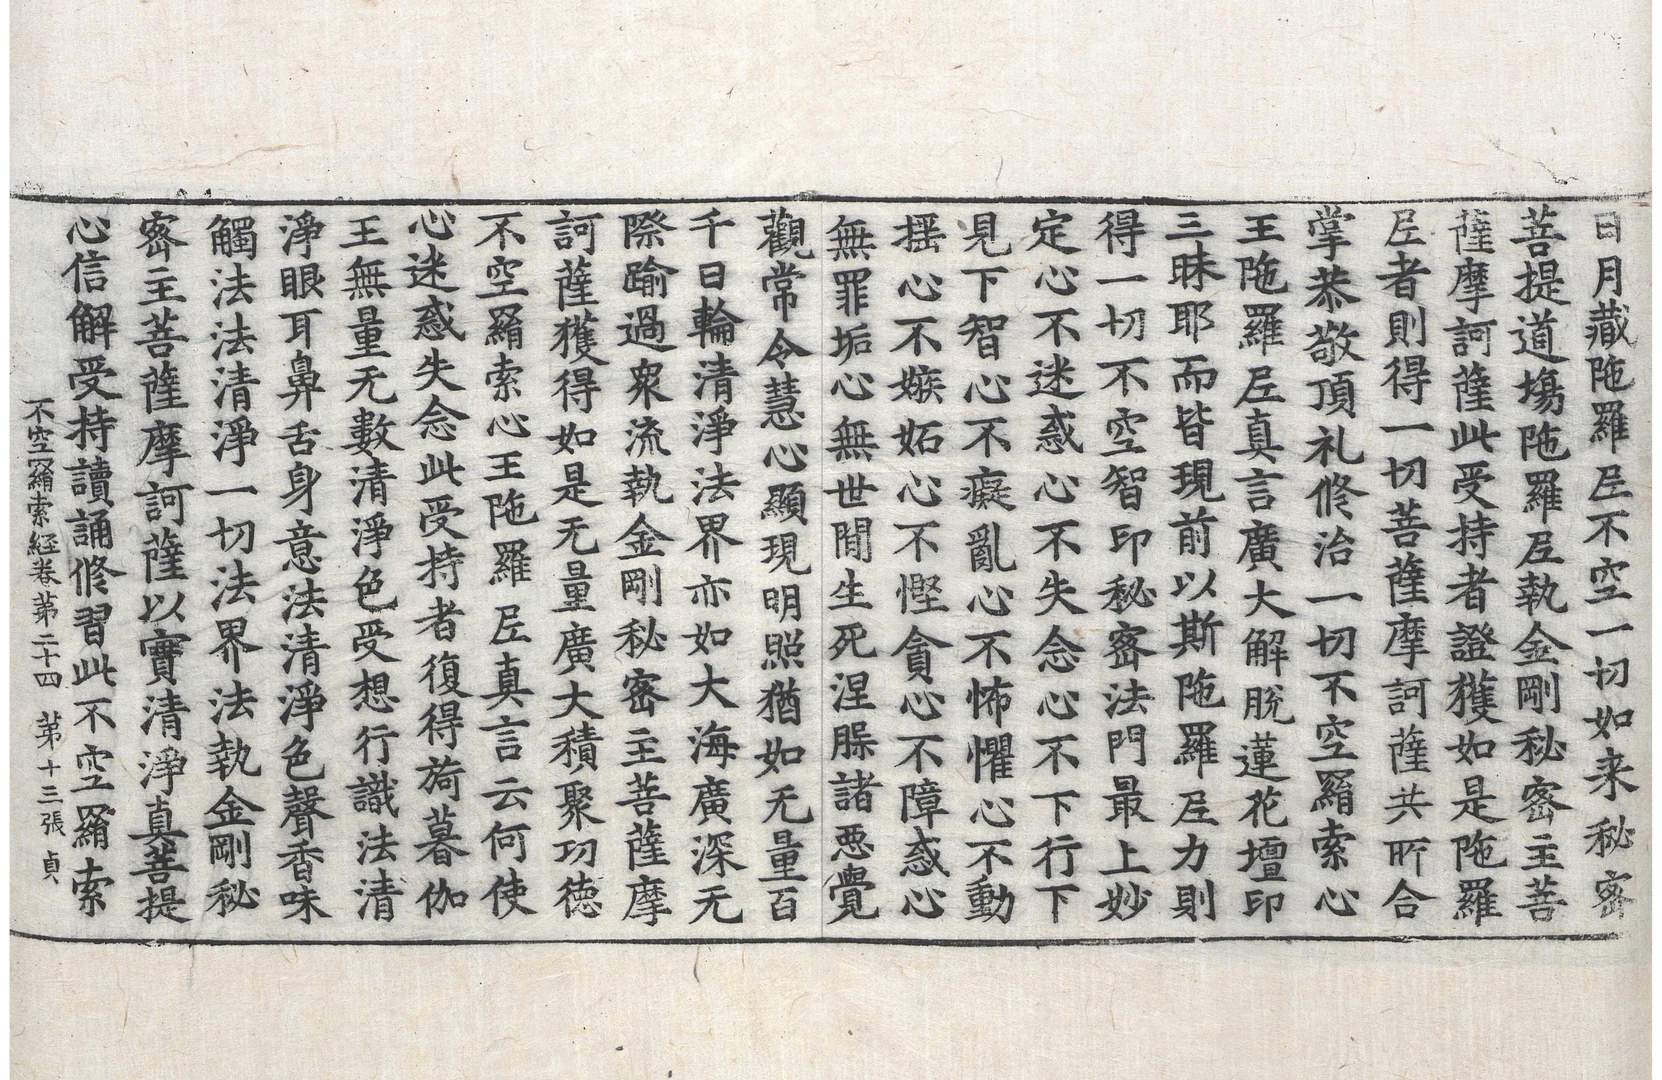 日月藏陁羅𡰱不空一切如来秘密
菩提道塲陁羅𡰱執金剛秘密主菩
薩摩訶薩此受持者證獲如是陁羅
𡰱者則得一切菩薩摩訶薩共所合
掌恭敬頂礼修治一切不空羂索心
王陁羅𡰱真言廣大解脫蓮花壇印
三昧耶而皆現前以斯陁羅𡰱力則
得一切不空智印秘密法門最上妙
定心不迷惑心不失念心不下行下
見下智心不癡亂心不怖懼心不動
揺心不嫉妬心不慳貪心不障惑心
無罪垢心無世閒生死涅槃諸惡覺
觀常令慧心顯現明照猶如无量百
千日輪清淨法界亦如大海廣深无
際踰過衆流執金剛秘密主菩薩摩
訶薩獲得如是无量廣大積聚功德
不空羂索心王陁羅𡰱真言云何使
心迷惑失念此受持者復得旖暮伽
王無量无數清淨色受想行識法清
淨眼耳鼻舌身意法清淨色聲香味
觸法法清淨一切法界法執金剛秘
密主菩薩摩訶薩以實清淨真菩提
心信解受持讀誦修習此不空羂索
不空羂索経卷苐二十四 苐十三張 貞